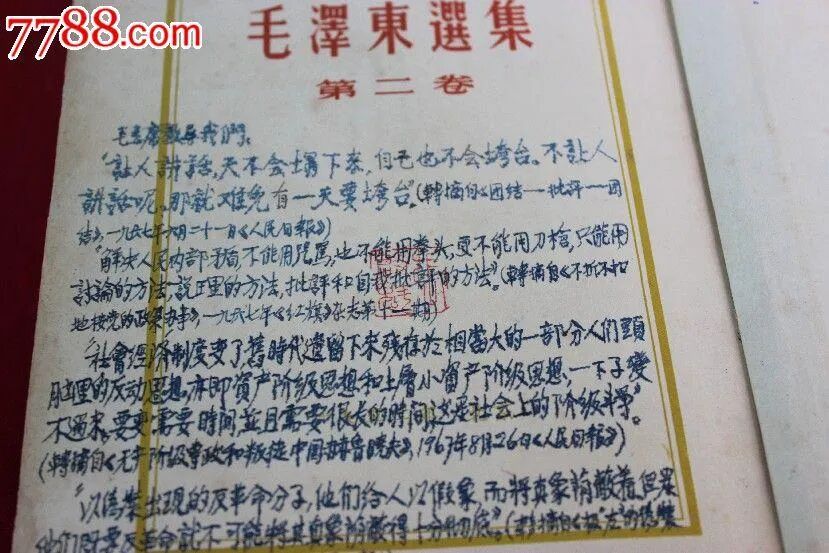 7788.com
毛澤東選集
第二卷
毛主席教导我們:
"让人讲話,天不会塌下来,自己也不会垮台。不让人
讲話呢,那就难免有一天要垮台。"(轉摘自《团结——批评——团
结》,一九六七年 月二十一日《人民日報》)
"解决人民内部矛盾不能用咒罵,也不能用拳头,更不能用刀槍,只能用
討論的方法,説理的方法,批評和自我批評的方法"。(轉摘自《不折不扣
地按党的政策办事》,一九六七年《红旗》杂志第十一期)
"社會經济制度变了,舊時代遺留下来残存於相當大的一部分人們頭
脑里的反动思想,亦即資产阶级思想和上層小資产阶级思想,一下子變
不過来。要变需要時间,並且需要很长的時间,这是社会上的阶级斗争"
(轉摘自《无产阶级專政和叛徒中国赫魯曉夫》,1967年8月26日《人民日報》)
"以偽裝出現的反革命分子,他們给人以假象,而将真象蔭蔽着。但是
他们既要反革命就不可能将其真象蔭蔽得十分徹底。"(轉摘自《 "左"